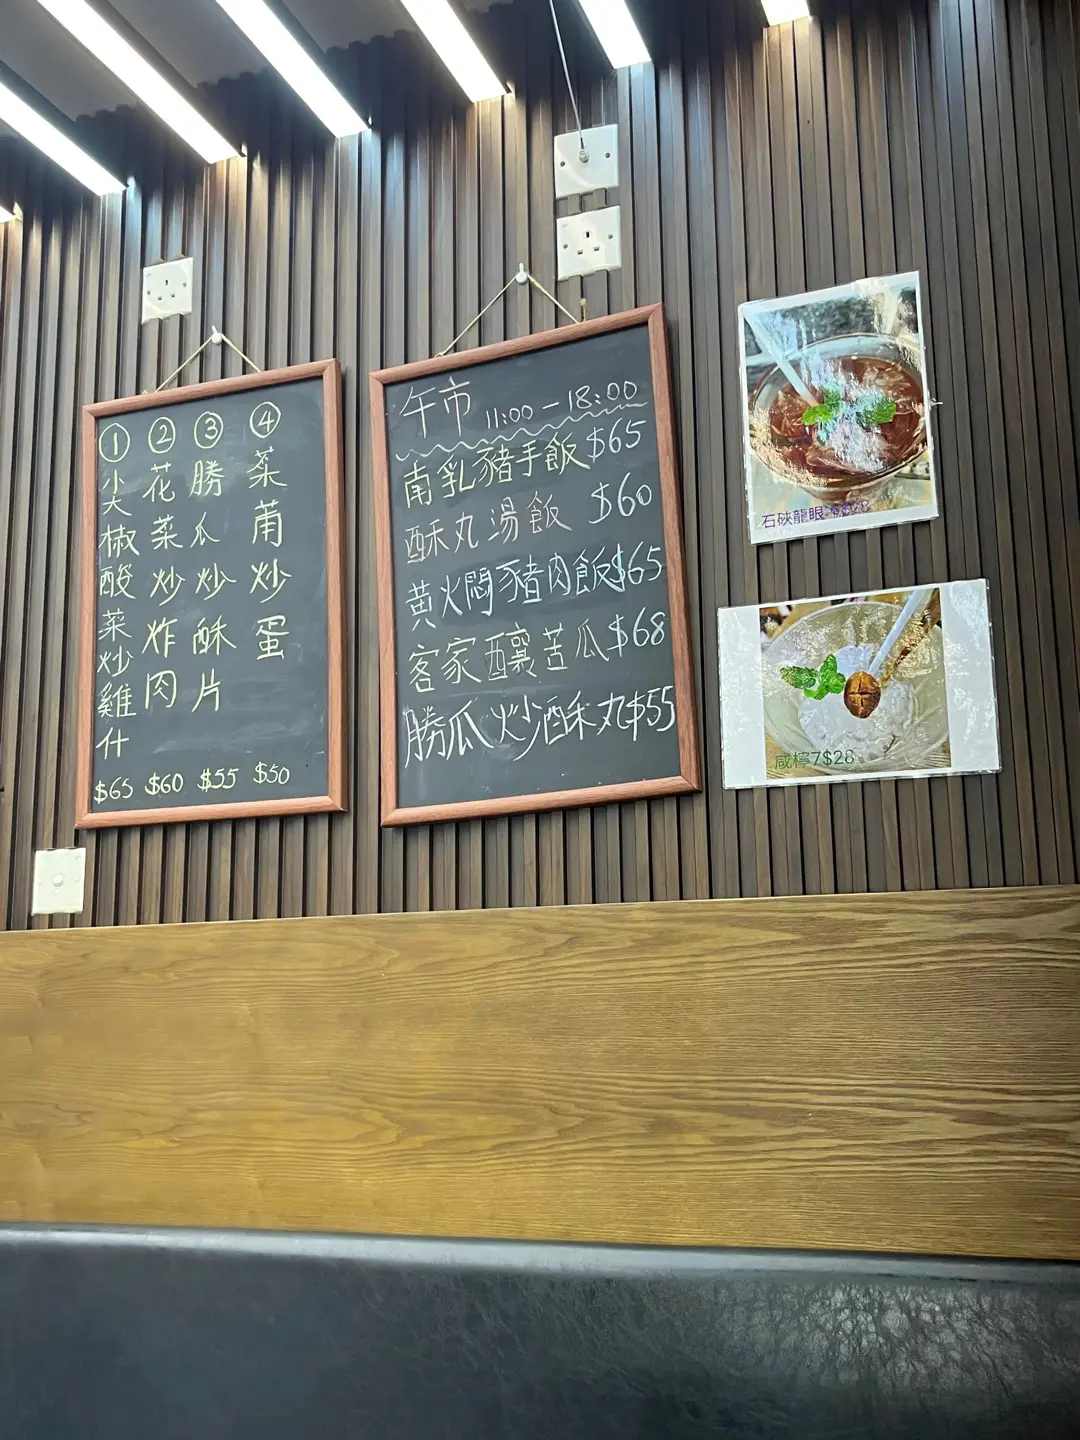 ① 尖椒酸菜炒雞什 $65
② 花菜炒炸肉 $60
③ 勝瓜炒酥片 $55
④ 菜莆炒蛋 $50
午市 11:00-18:00
南乳豬手飯 $65
酥丸湯飯 $60
黃火悶豬肉飯 $65
客家釀苦瓜 $68
勝瓜炒酥丸 $55
石硤龍眼
咸檸7$28